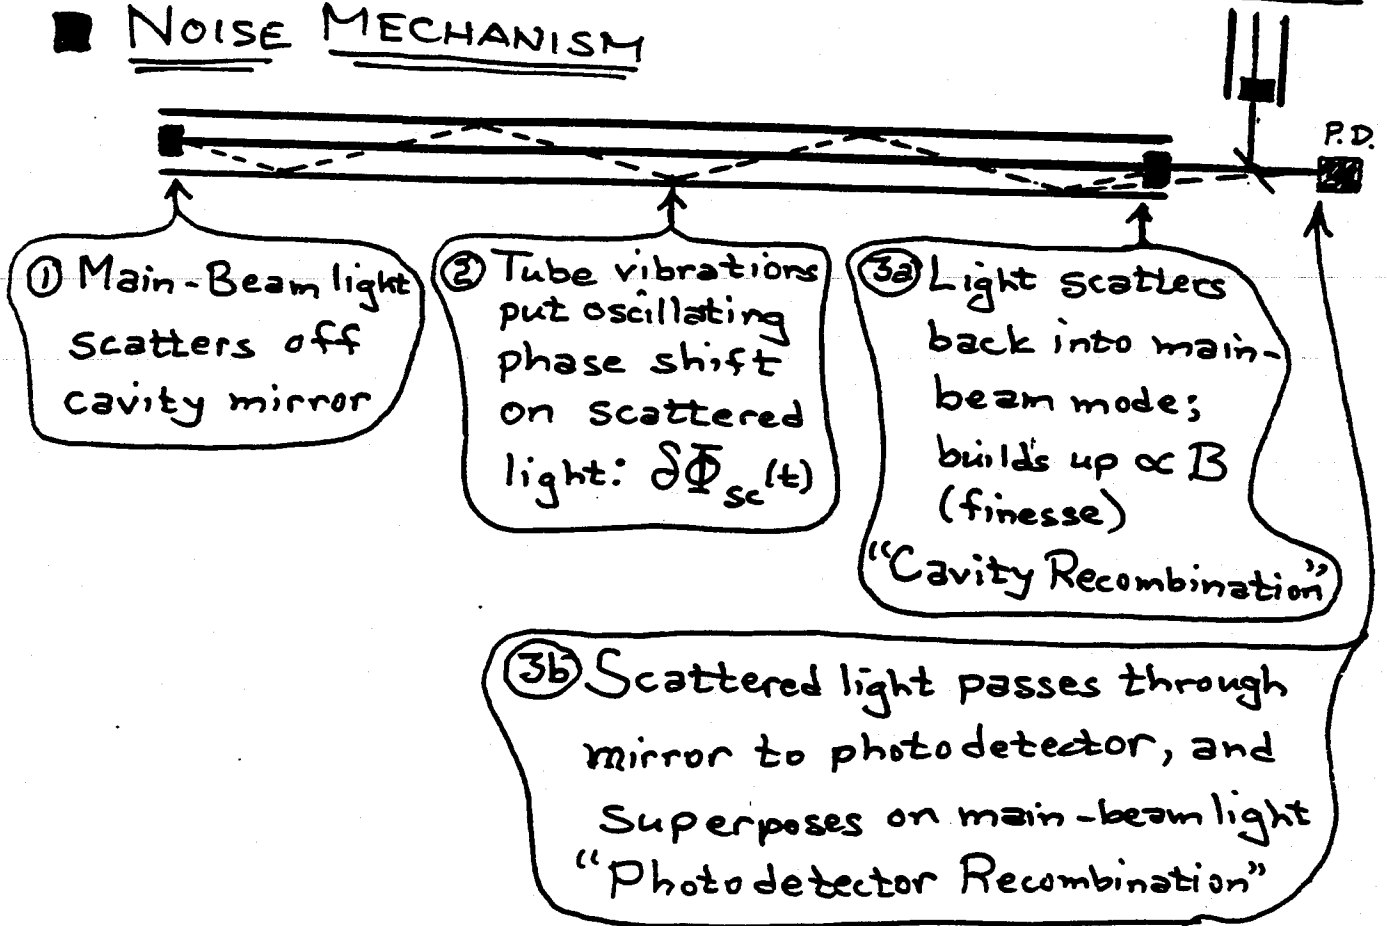 ■ NOISE MECHANISM
P.D.
① Main-Beam light
scatters off
cavity mirror
② Tube vibrations
put oscillating
phase shift
on scattered
light: δΦ_sc(t)
3a Light scatters
back into main-
beam mode;
builds up ∝ B
(finesse)
"Cavity Recombination"
3b Scattered light passes through
mirror to photodetector, and
superposes on main-beam light
"Photodetector Recombination"